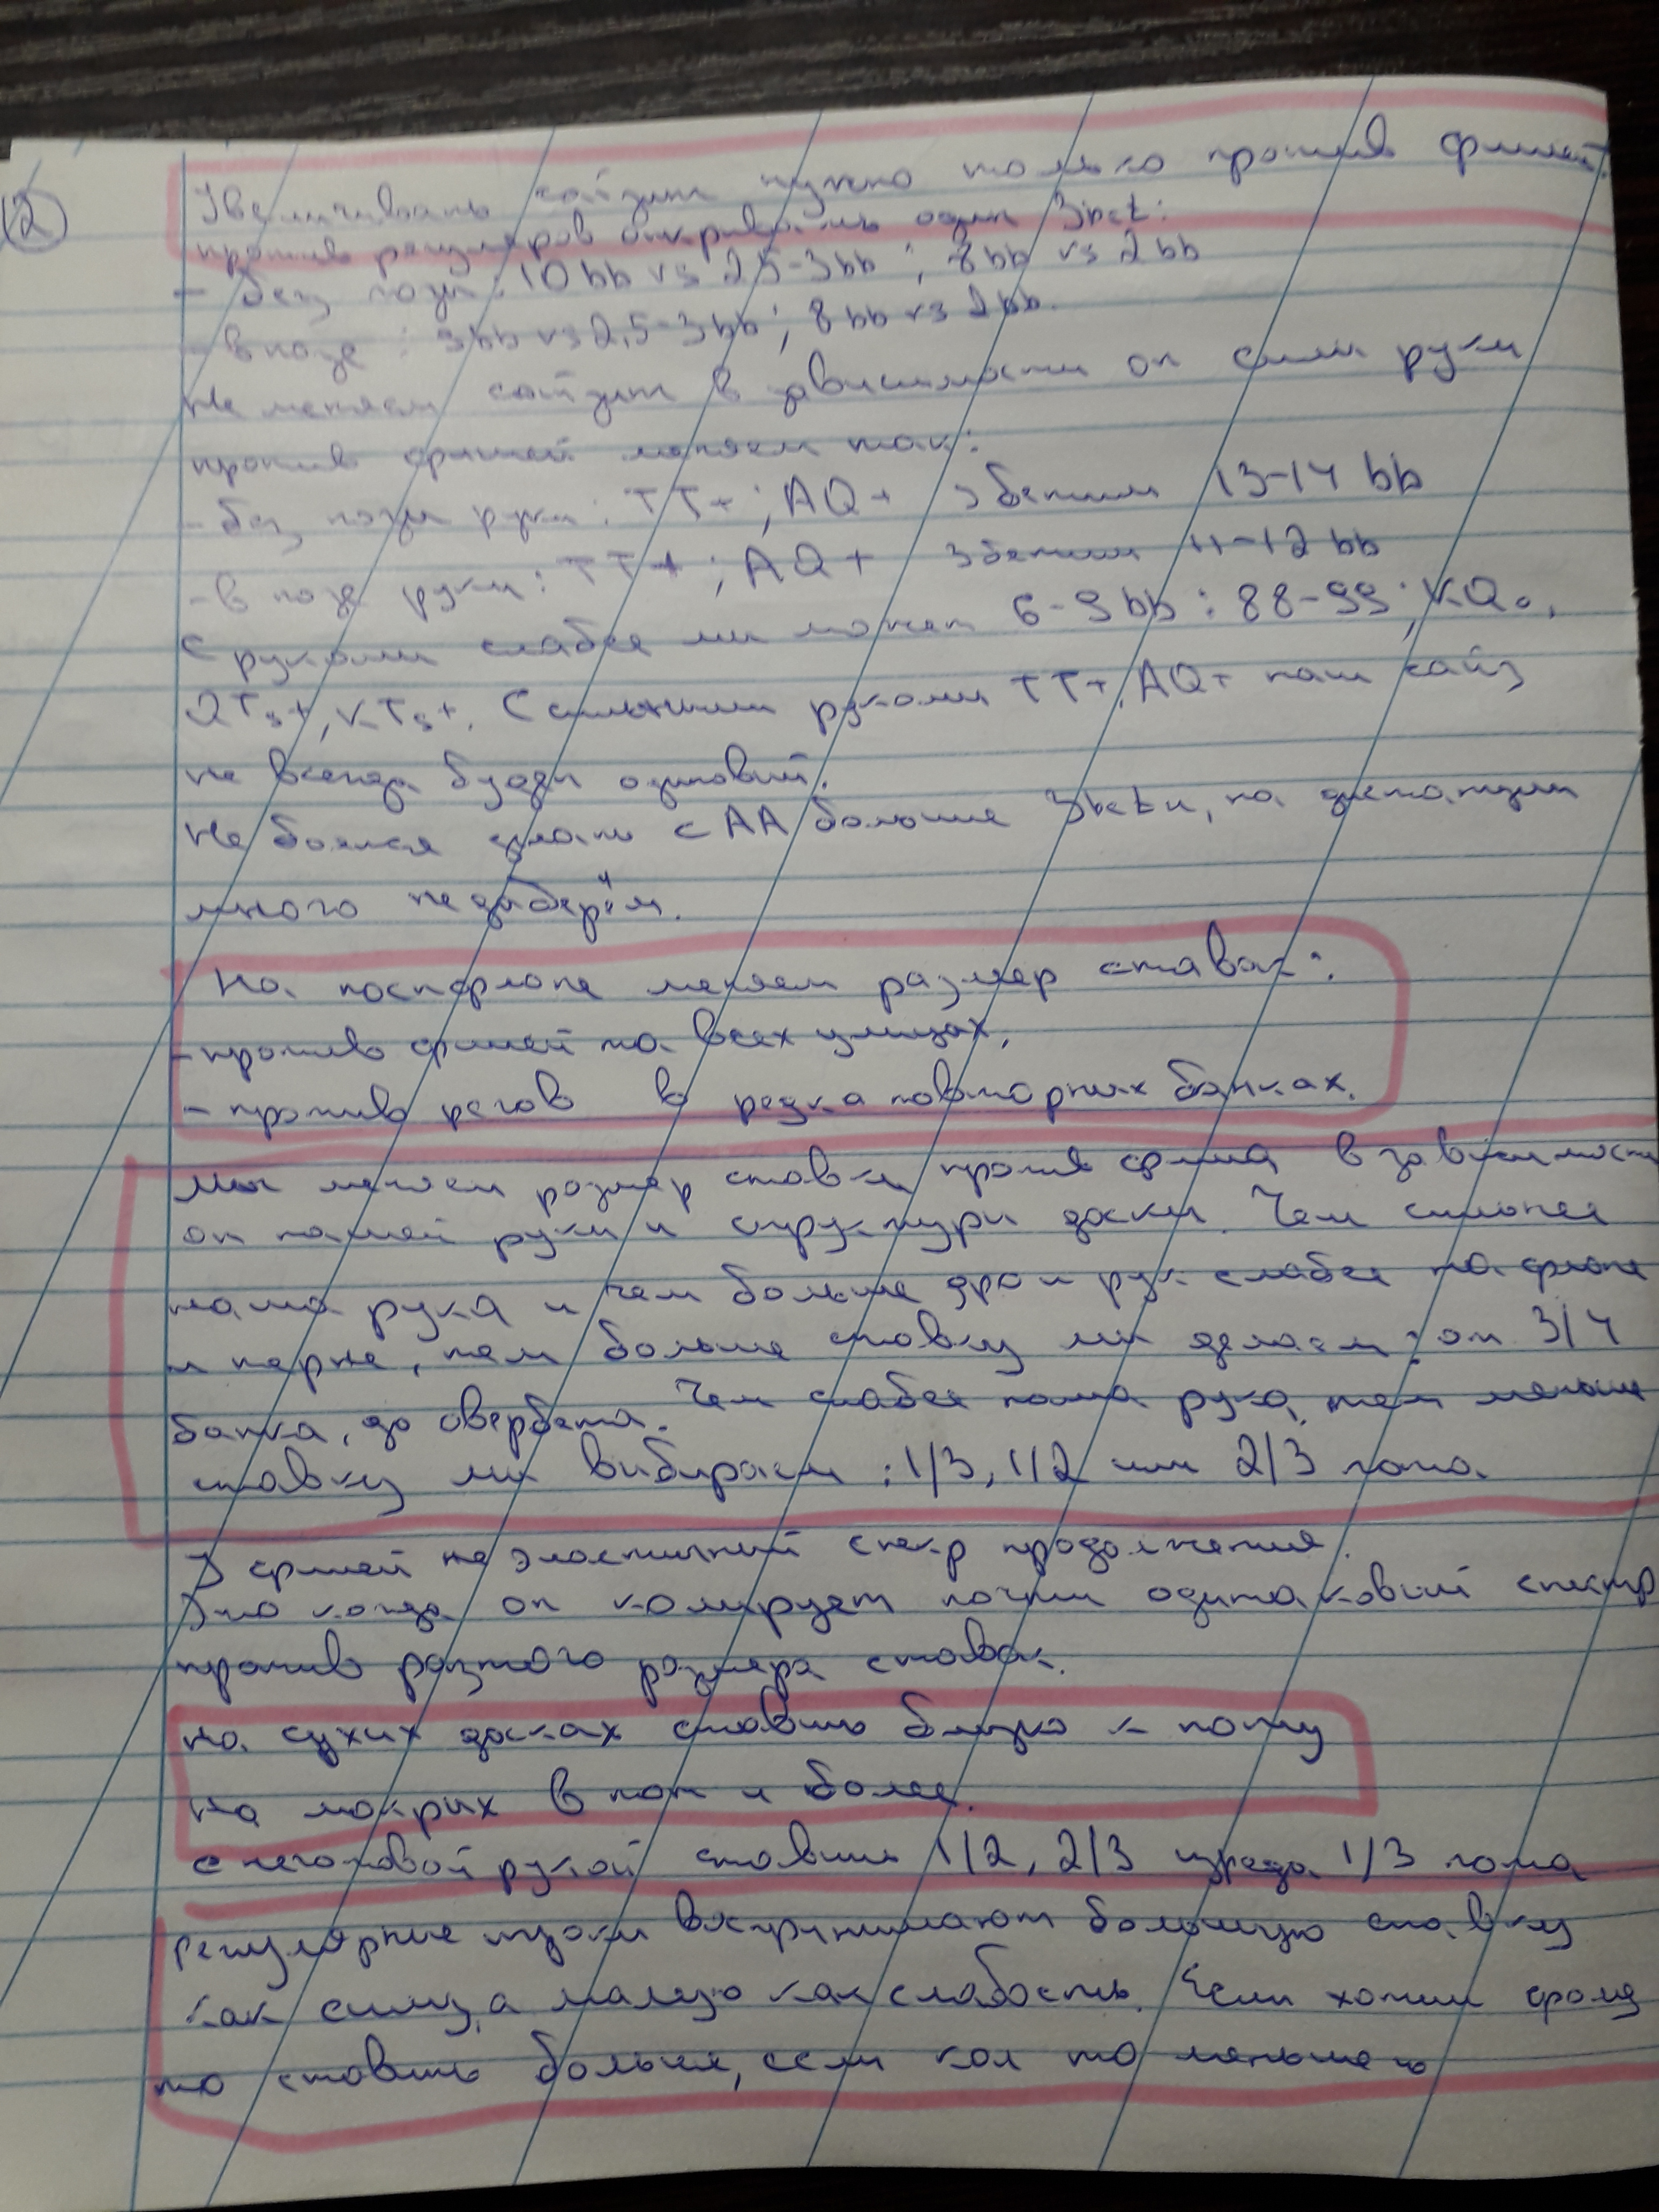 12
Увеличивать сайзинг нужно только против фишей.
против регуляров открывать один 3bet:
- без пози: 10 bb vs 2,5-3bb ; 8bb vs 2bb
- в позе : 9bb vs 2,5-3bb ; 8bb vs 2bb.
Не меняем сайзинг в зависимости от силы руки
против фишей меняем так:
- без пози руки : TT+ ; AQ+ 3бетим 13-14 bb
- в позе руки : TT+ ; AQ+ 3бетим 11-12 bb
С руками слабее ми может 6-9bb : 88-99 ; KQo,
QTs+, KTs+. С сильними руками TT+, AQ+ наш сайз
не всегда будет одиновий.
Не боимся делать с AA больше 3betи, на дистанции
много недоберём.
На постфлопе меняем размер ставок:
- против фишей на всех улицах,
- против регов в редка повторних банках.
Ми меняем размер ставки против фиша в зависимости
от нашей руки и структури доски. Чем сильнее
наша рука и чем больше дро и рук слабее на флопе
и терне, тем больше ставку ми делаем : от 3/4
банка, до овербета. Чем слабее наша рука, тем меньше
ставку ми вибираем : 1/3, 1/2 или 2/3 пота.
У фишей не эластичний спектр продолжения.
Это когда он колирует почти одинаковий спектр
против разного размера ставок.
На сухих досках ставить близко к поту
на мокрих в пот и более.
с неготовой рукой ставить 1/2, 2/3 изредка 1/3 пота
регулярние игроки воспринимают большую ставку
как силу, а малую как слабость. Если хотим фолд
то ставить больше, если кол то меньшего